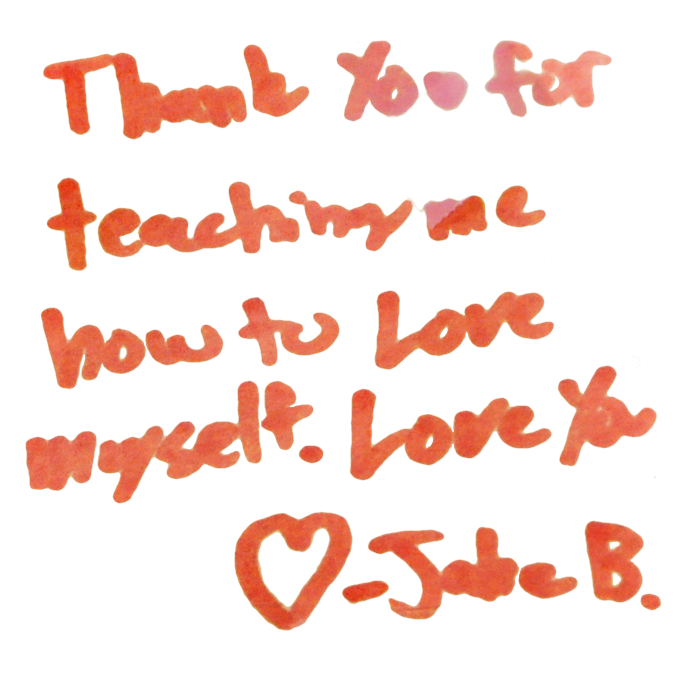 Thank You for
teaching me
how to Love
myself. Love You
♡ - Jake B.